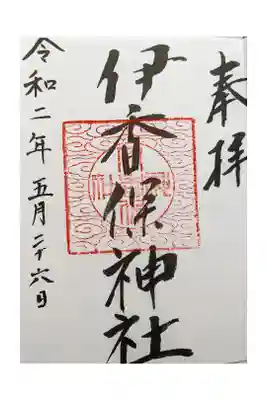 奉拝
伊香保神社
令和二年五月二十六日